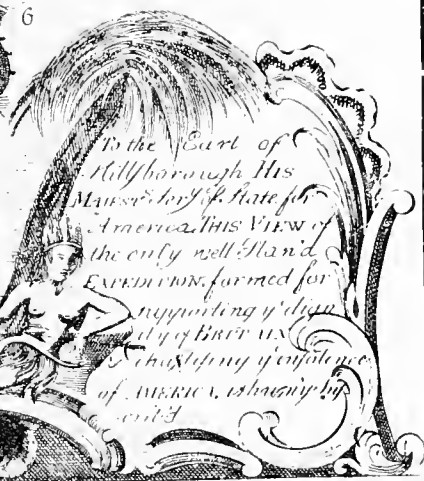 6
To the Earl of
Hillsborough HIS
MAJESTs Secry of State for
America. THIS VIEW of
the only well Plan'd
EXPEDITION, formed for
supporting ye dign
ity of BRITAIN
& chastising ye insolence
of AMERICA, is hum'y In
scrib'd